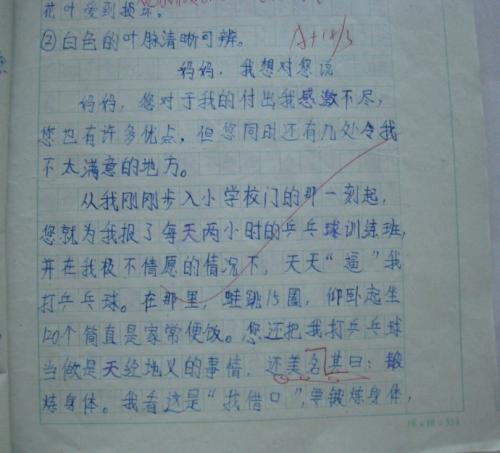 花叶受到损坏。
②白色的叶脉清晰可辨。
A+ 14/3
妈妈，我想对您说
妈妈，您对于我的付出我感激不尽，
您也有许多优点，但您同时还有几处令我
不太满意的地方。
从我刚刚步入小学校门的那一刻起，
您就为我报了每天两小时的乒乓球训练班，
并在我极不情愿的情况下，天天“逼”我
打乒乓球。在那里，蛙跳15圈，仰卧起坐
120个简直是家常便饭。您还把我打乒乓球
当做是天经地义的事情，还美名其曰：锻
炼身体。我看这是“找借口”，要锻炼身体，